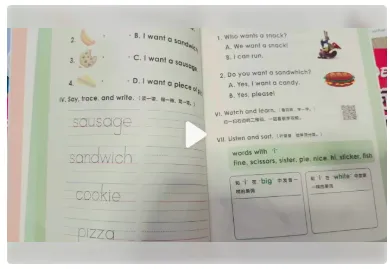 2.
· B. I want a sandwich
3.
· C. I want a sausage
4.
· D. I want a piece of
IV. Say, trace, and write.
sausage
sandwich
cookie
pizza
1. Who wants a snack?
A. We want a snack!
B. I can run.
2. Do you want a sandwhich?
A. Yes, I want a candy.
B. Yes, please!
VI. Watch and learn.
VII. Listen and sort.
words with "i"
fine, scissors, sister, pie, nice, hi, sticker, fish
和 "i" 在 big 中发音一
和 "i" 在 white